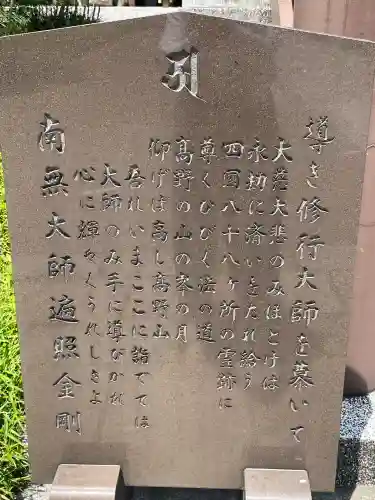 導き修行大師を慕いて
大慈大悲のみほとけは
永劫に済いをたれ給う
四國八十八ヶ所の霊跡に
尊くひびく法の道
髙野の山の峯の月
仰げば高し高野山
吾れいまここに詣でては
大師のみ手に導びかれ
心に輝やくうれしさよ
南無大師遍照金剛